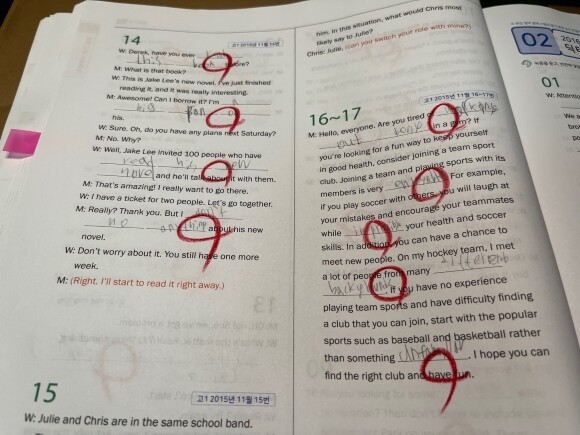 14
고1 2015년 11월 14번
W: Derek, have you ever
this book before?
M: What is that book?
W: This is Jake Lee's new novel. I've just finished
reading it, and it was really interesting.
M: Awesome! Can I borrow it? I'm a
big fan of
his.
W: Sure. Oh, do you have any plans next Saturday?
M: No. Why?
W: Well, Jake Lee invited 100 people who have
read his new
novel and he'll talk about it with them.
M: That's amazing! I really want to go there.
W: I have a ticket for two people. Let's go together.
M: Really? Thank you. But I
no anything about his new
novel.
W: Don't worry about it. You still have one more
week.
M: (Right. I'll start to read it right away.)
15
고1 2015년 11월 15번
W: Julie and Chris are in the same school band.
him. In this situation, what would Chris most
likely say to Julie?
Chris: Julie, (can you switch your role with mine?)
16~17
고1 2015년 11월 16~17번
M: Hello, everyone. Are you tired of
out in a gym? If
you're looking for a fun way to keep yourself
in good health, consider joining a team sport
club. Joining a team and playing sports with its
members is very For example,
if you play soccer with others, you will laugh at
your mistakes and encourage your teammates
while your health and soccer
skills. In addition, you can have a chance to
meet new people. On my hockey team, I met
a lot of people from many different
backgrounds. If you have no experience
playing team sports and have difficulty finding
a club that you can join, start with the popular
sports such as baseball and basketball rather
than something . I hope you can
find the right club and have fun.
02
01
W: Attentio